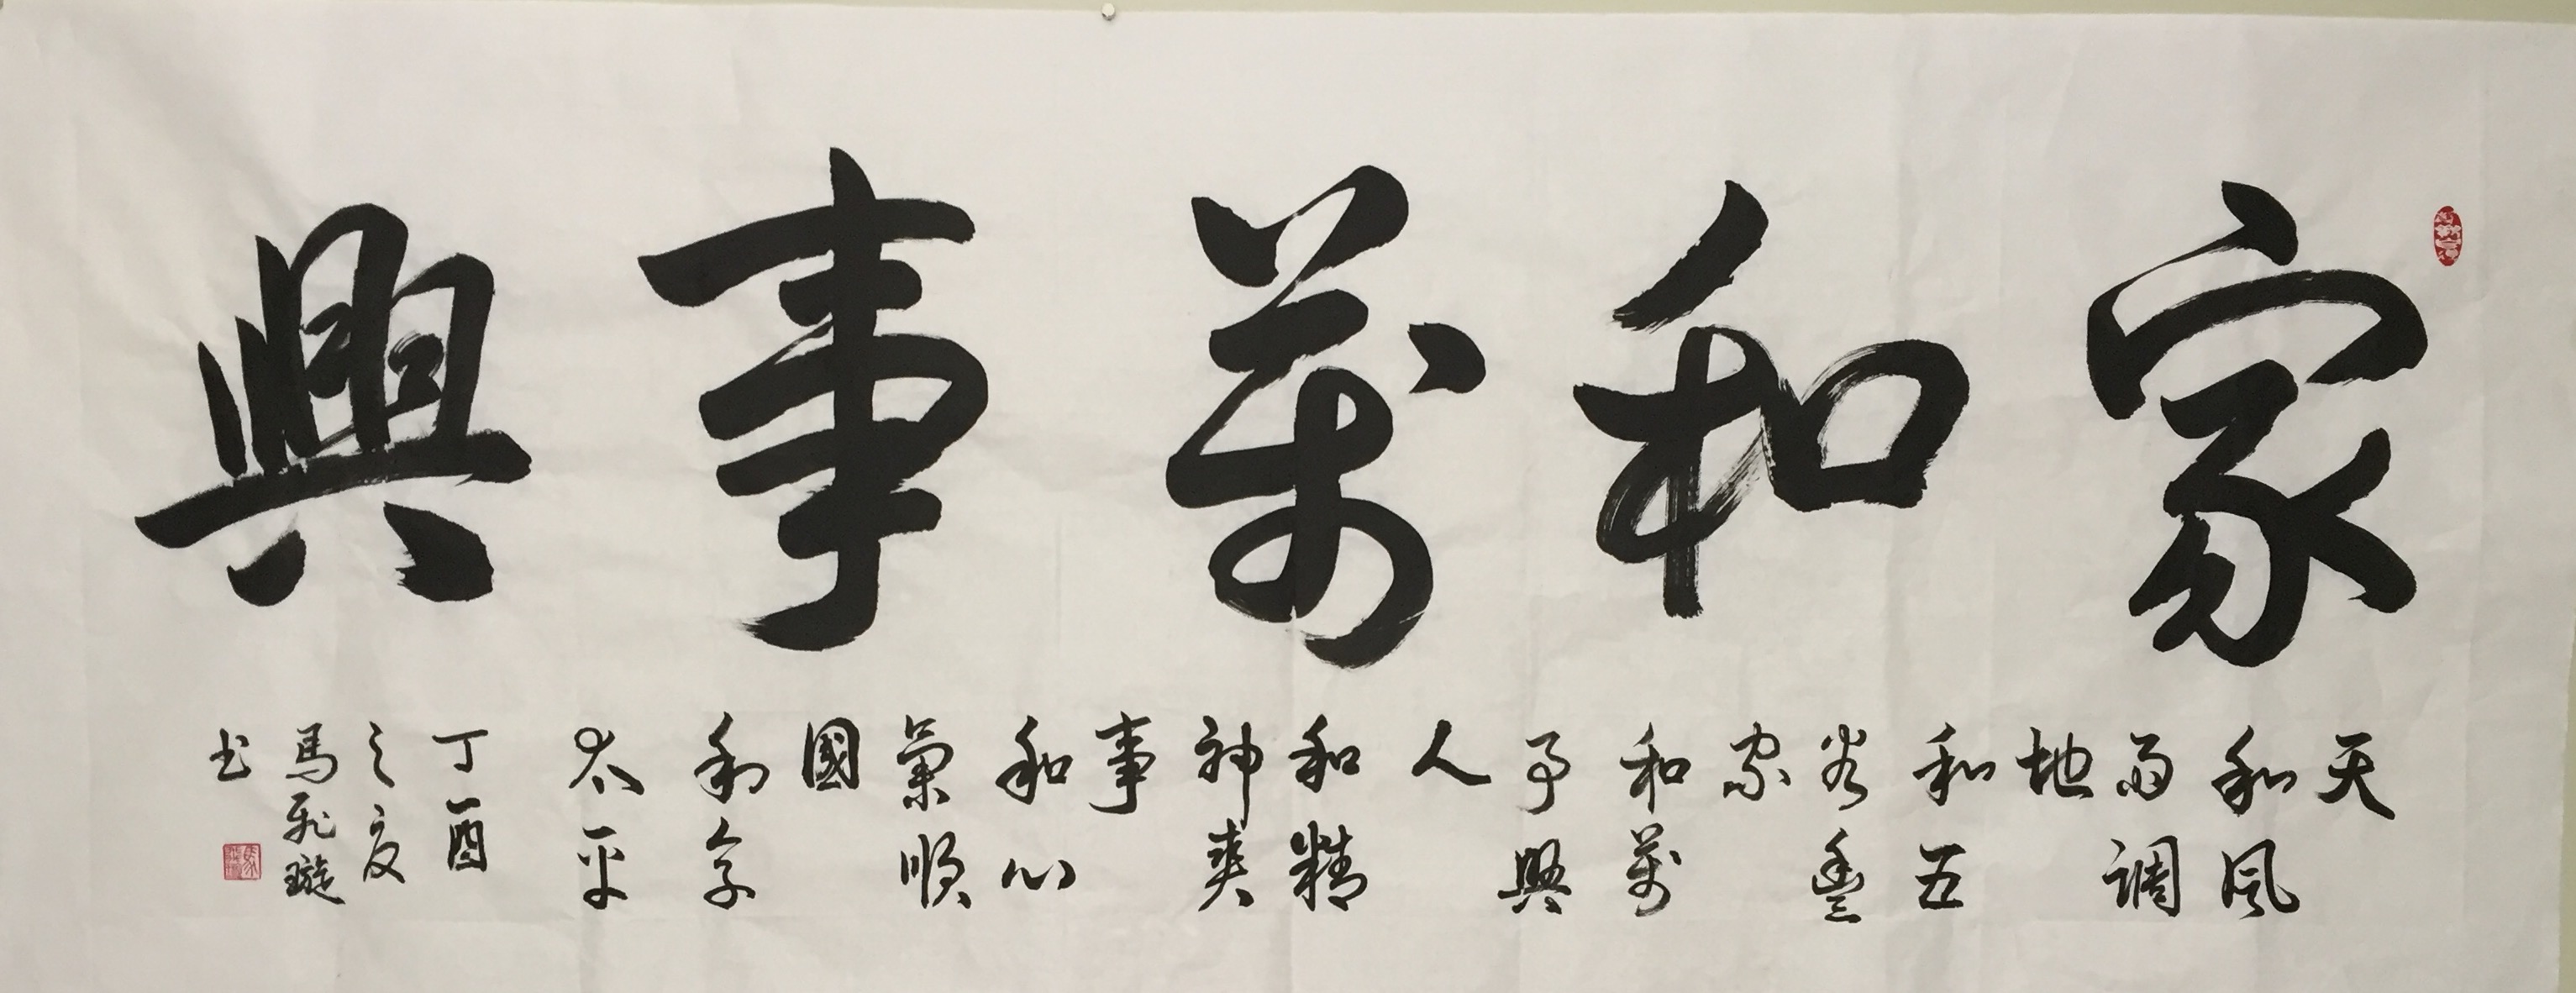 家和萬事興
天
和風
雨調
地
和五
谷豐
家
和萬
事興
人
和精
神爽
事
和心
氣順
國
和享
太平
丁酉
之夏
馬飛璇
书